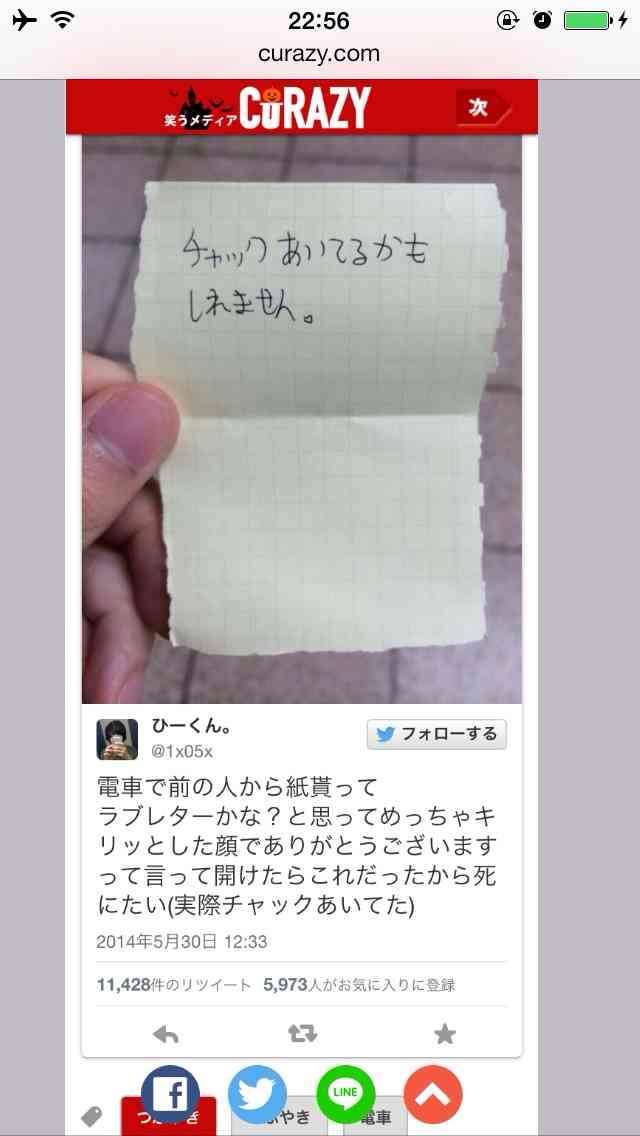 22:56
curazy.com
笑うメディア CURAZY
次
チャックあいてるかも
しれません。
ひーくん。
@1x05x
フォローする
電車で前の人から紙貰って
ラブレターかな?と思ってめっちゃキ
リッとした顔でありがとうございます
って言って開けたらこれだったから死
にたい(実際チャックあいてた)
2014年5月30日 12:33
11,428件のリツイート 5,973人がお気に入りに登録
LINE
電車